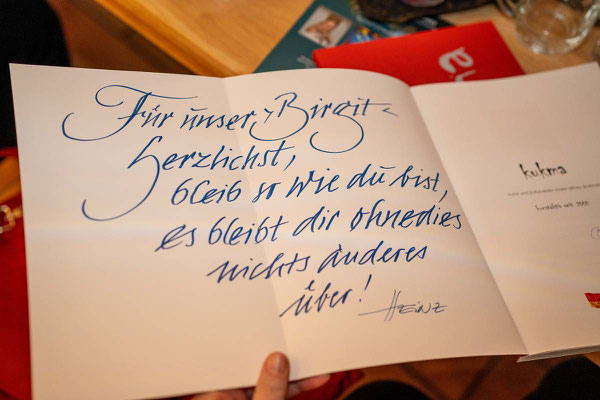 Für unser >Birgit<
herzlichst,
bleib so wie du bist,
es bleibt dir ohnedies
nichts anderes
über!
HEiNZ
kukma